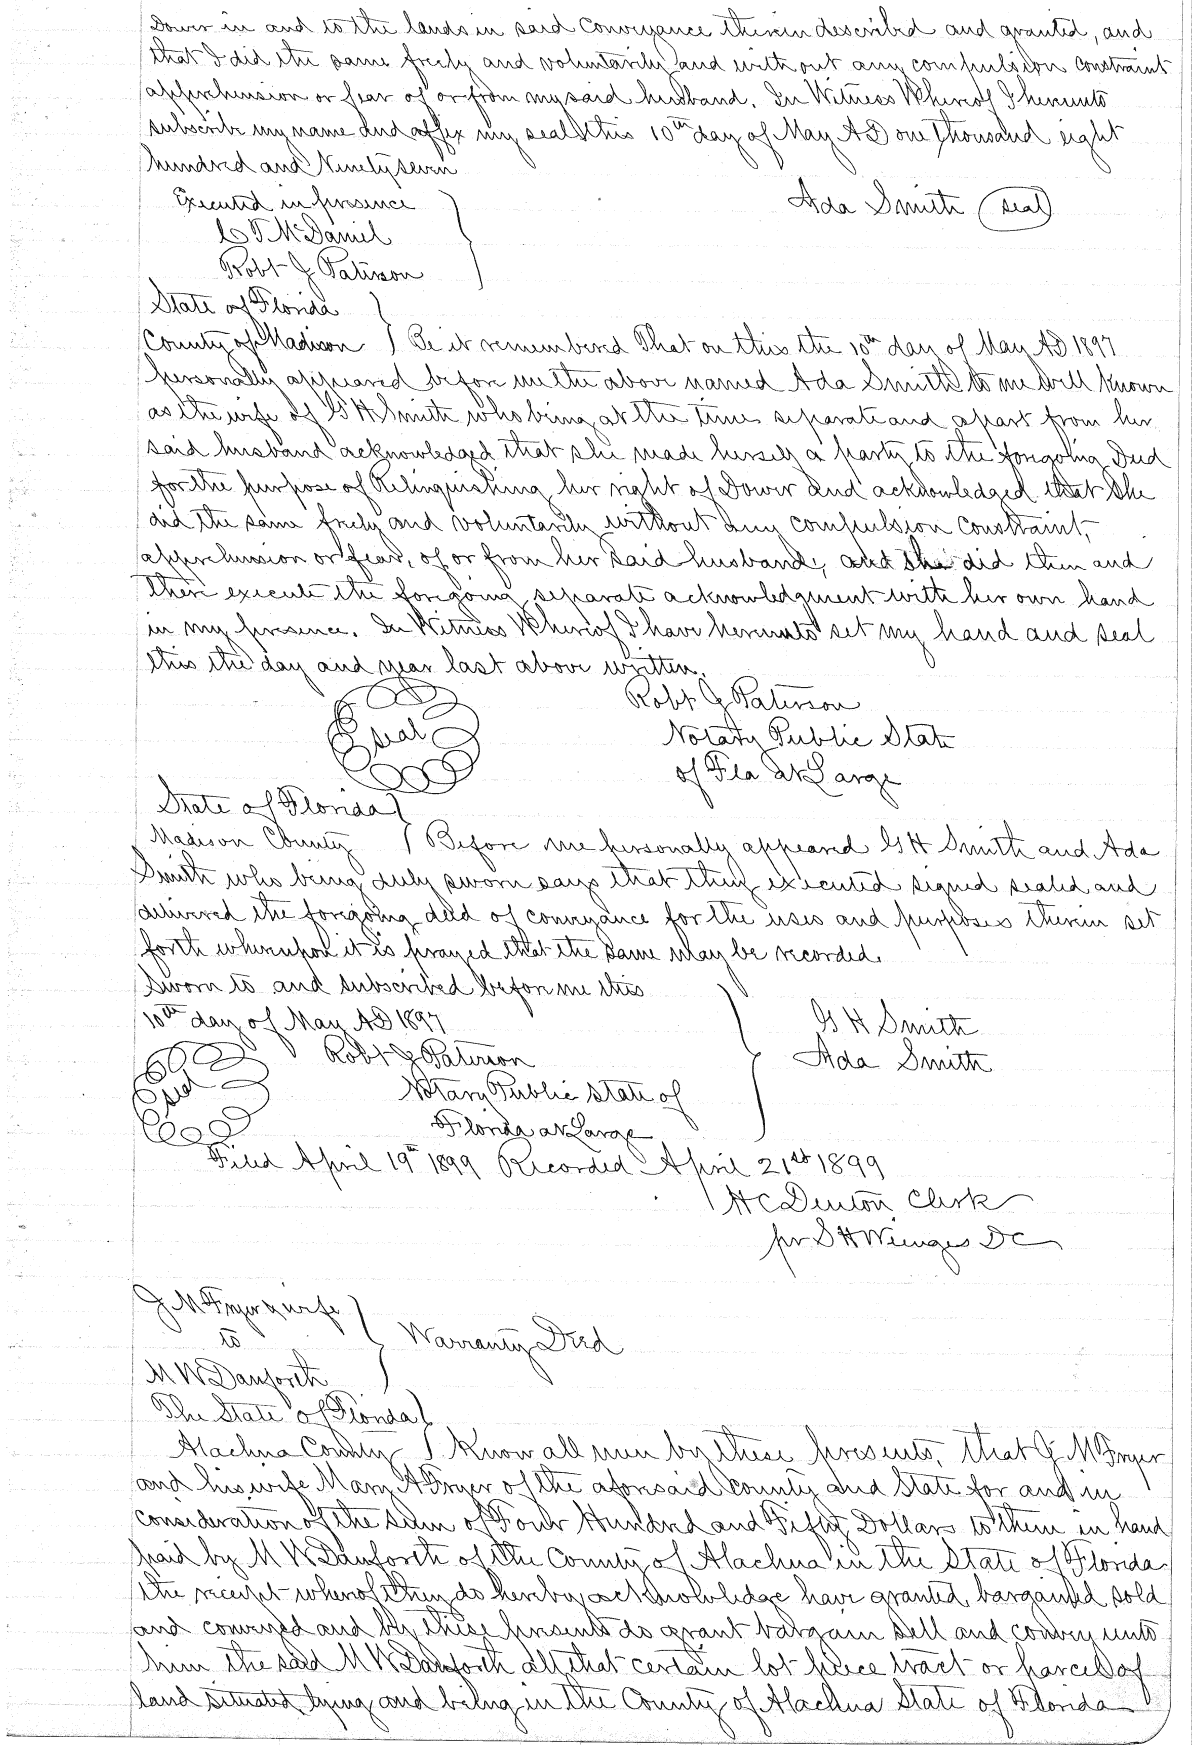 Dower in and to the lands in said Conveyance therein described and granted, and
that I did the same freely and voluntarily and without any compulsion constraint
apprehension or fear of or from my said husband. In Witness Whereof I hereunto
subscribe my name and affix my seal this 10th day of May AD one thousand eight
hundred and Ninety seven
Executed in presence
Ada Smith (seal)
C T McDaniel
Robt J Paterson
State of Florida
County of Madison } Be it remembered That on this the 10th day of May AD 1897
personally appeared before me the above named Ada Smith to me well known
as the wife of G H Smith who being at the time separate and apart from her
said husband acknowledged that she made herself a party to the foregoing Deed
for the purpose of Relinquishing her right of Dower and acknowledged that she
did the same freely and voluntarily without any compulsion constraint,
apprehension or fear, of or from her said husband, and she did then and
there execute the foregoing separate acknowledgment with her own hand
in my presence. In Witness Whereof I have hereunto set my hand and seal
this the day and year last above written.
Robt J Paterson
seal
Notary Public State
of Fla at Large
State of Florida
Madison County } Before me personally appeared G H Smith and Ada
Smith who being duly sworn says that they executed signed sealed and
delivered the foregoing deed of conveyance for the uses and purposes therein set
forth whereupon it is prayed that the same may be recorded.
Sworn to and subscribed before me this
10th day of May AD 1897
G H Smith
Robt J Paterson
Ada Smith
seal
Notary Public State of
Florida at Large
Filed April 19th 1899 Recorded April 21st 1899
H C Denton Clerk
pr S H Wienges DC
J M Fryer & wife
to
Warranty Deed
M W Danforth
The State of Florida
Alachua County } Know all men by these presents, that J M Fryer
and his wife Mary A Fryer of the aforesaid county and State for and in
consideration of the sum of Four Hundred and Fifty Dollars to them in hand
paid by M W Danforth of the County of Alachua in the State of Florida
the receipt whereof they do hereby acknowledge have granted, bargained sold
and conveyed and by these presents do grant bargain sell and convey unto
him the said M W Danforth all that certain lot piece tract or parcel of
land situated lying and being in the County of Alachua State of Florida